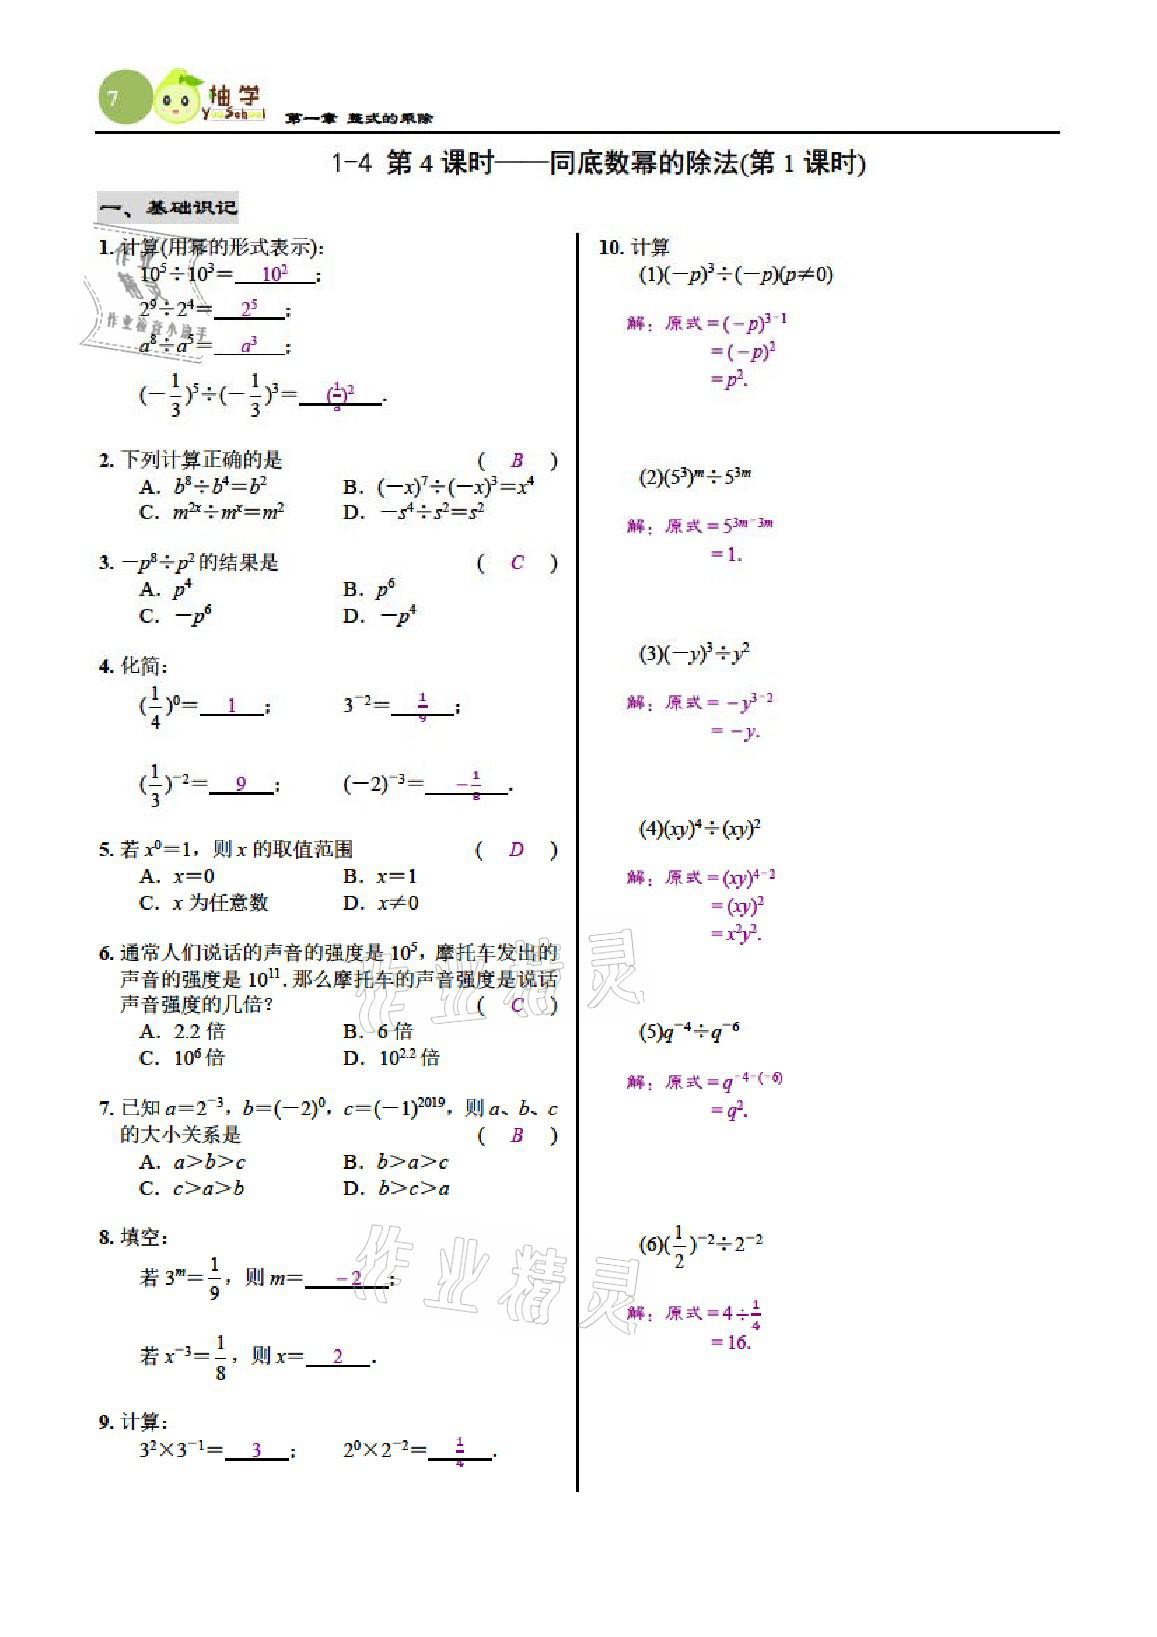 7
柚学
YouSchool
第一章 整式的乘除
1-4 第4课时——同底数幂的除法(第1课时)
一、基础识记
1. 计算(用幂的形式表示)：
10⁵÷10³= 10² ；
2⁹÷2⁴= 2⁵ ；
a⁸÷a⁵= a³ ；
(－1/3)⁵÷(－1/3)³= (1/3)² .
2. 下列计算正确的是 ( B )
A. b⁸÷b⁴=b² B. (－x)⁷÷(－x)³=x⁴
C. m²ˣ÷mˣ=m² D. －s⁴÷s²=s²
3. －p⁸÷p²的结果是 ( C )
A. p⁴ B. p⁶
C. －p⁶ D. －p⁴
4. 化简：
(1/4)⁰= 1 ； 3⁻²= 1/9 ；
(1/3)⁻²= 9 ； (－2)⁻³= －1/8 .
5. 若x⁰=1，则x的取值范围 ( D )
A. x=0 B. x=1
C. x为任意数 D. x≠0
6. 通常人们说话的声音的强度是10⁵，摩托车发出的
声音的强度是10¹¹.那么摩托车的声音强度是说话
声音强度的几倍？ ( C )
A. 2.2倍 B. 6倍
C. 10⁶倍 D. 10²·²倍
7. 已知a=2⁻³，b=(－2)⁰，c=(－1)²⁰¹⁹，则a、b、c
的大小关系是 ( B )
A. a>b>c B. b>a>c
C. c>a>b D. b>c>a
8. 填空：
若3ᵐ=1/9，则m= －2 ；
若x⁻³=1/8，则x= 2 .
9. 计算：
3²×3⁻¹= 3 ； 2⁰×2⁻²= 1/4 .
10. 计算
(1)(－p)³÷(－p)(p≠0)
解：原式=(－p)³⁻¹
=(－p)²
=p².
(2)(5³)ᵐ÷5³ᵐ
解：原式=5³ᵐ⁻³ᵐ
=1.
(3)(－y)³÷y²
解：原式=－y³⁻²
=－y.
(4)(xy)⁴÷(xy)²
解：原式=(xy)⁴⁻²
=(xy)²
=x²y².
(5)q⁻⁴÷q⁻⁶
解：原式=q⁻⁴⁻⁽⁻⁶⁾
=q².
(6)(1/2)⁻²÷2⁻²
解：原式=4÷1/4
=16.
作业
精灵
作业检查小助手
作业精灵
作业精灵